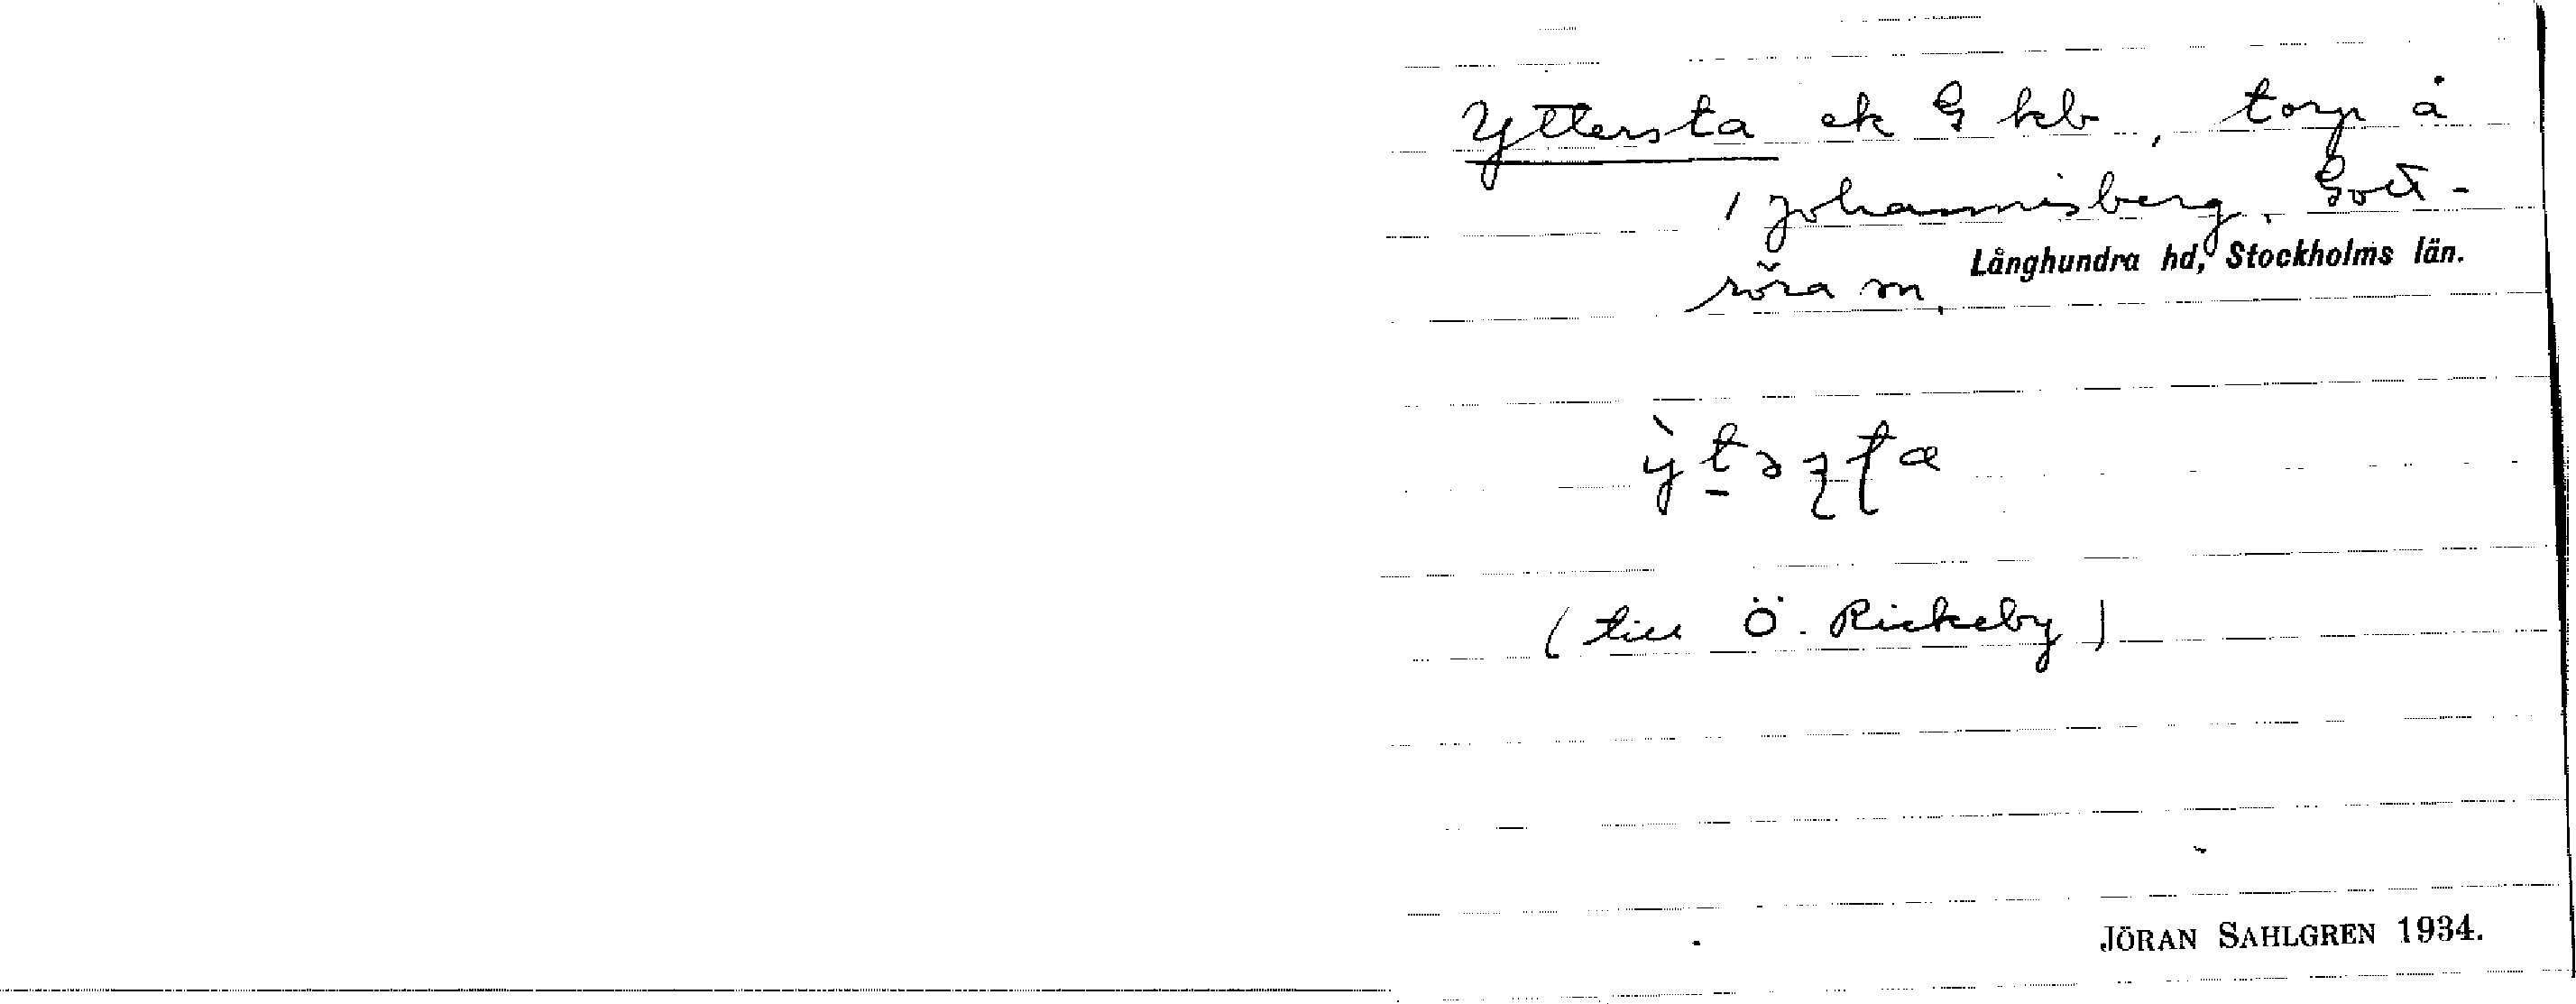 Yttersta ek G kb, torp å
Johannisberg. Gott-
röra sn. Långhundra hd, Stockholms län.
(till Ö. Rickeby)
JÖRAN SAHLGREN 1934.